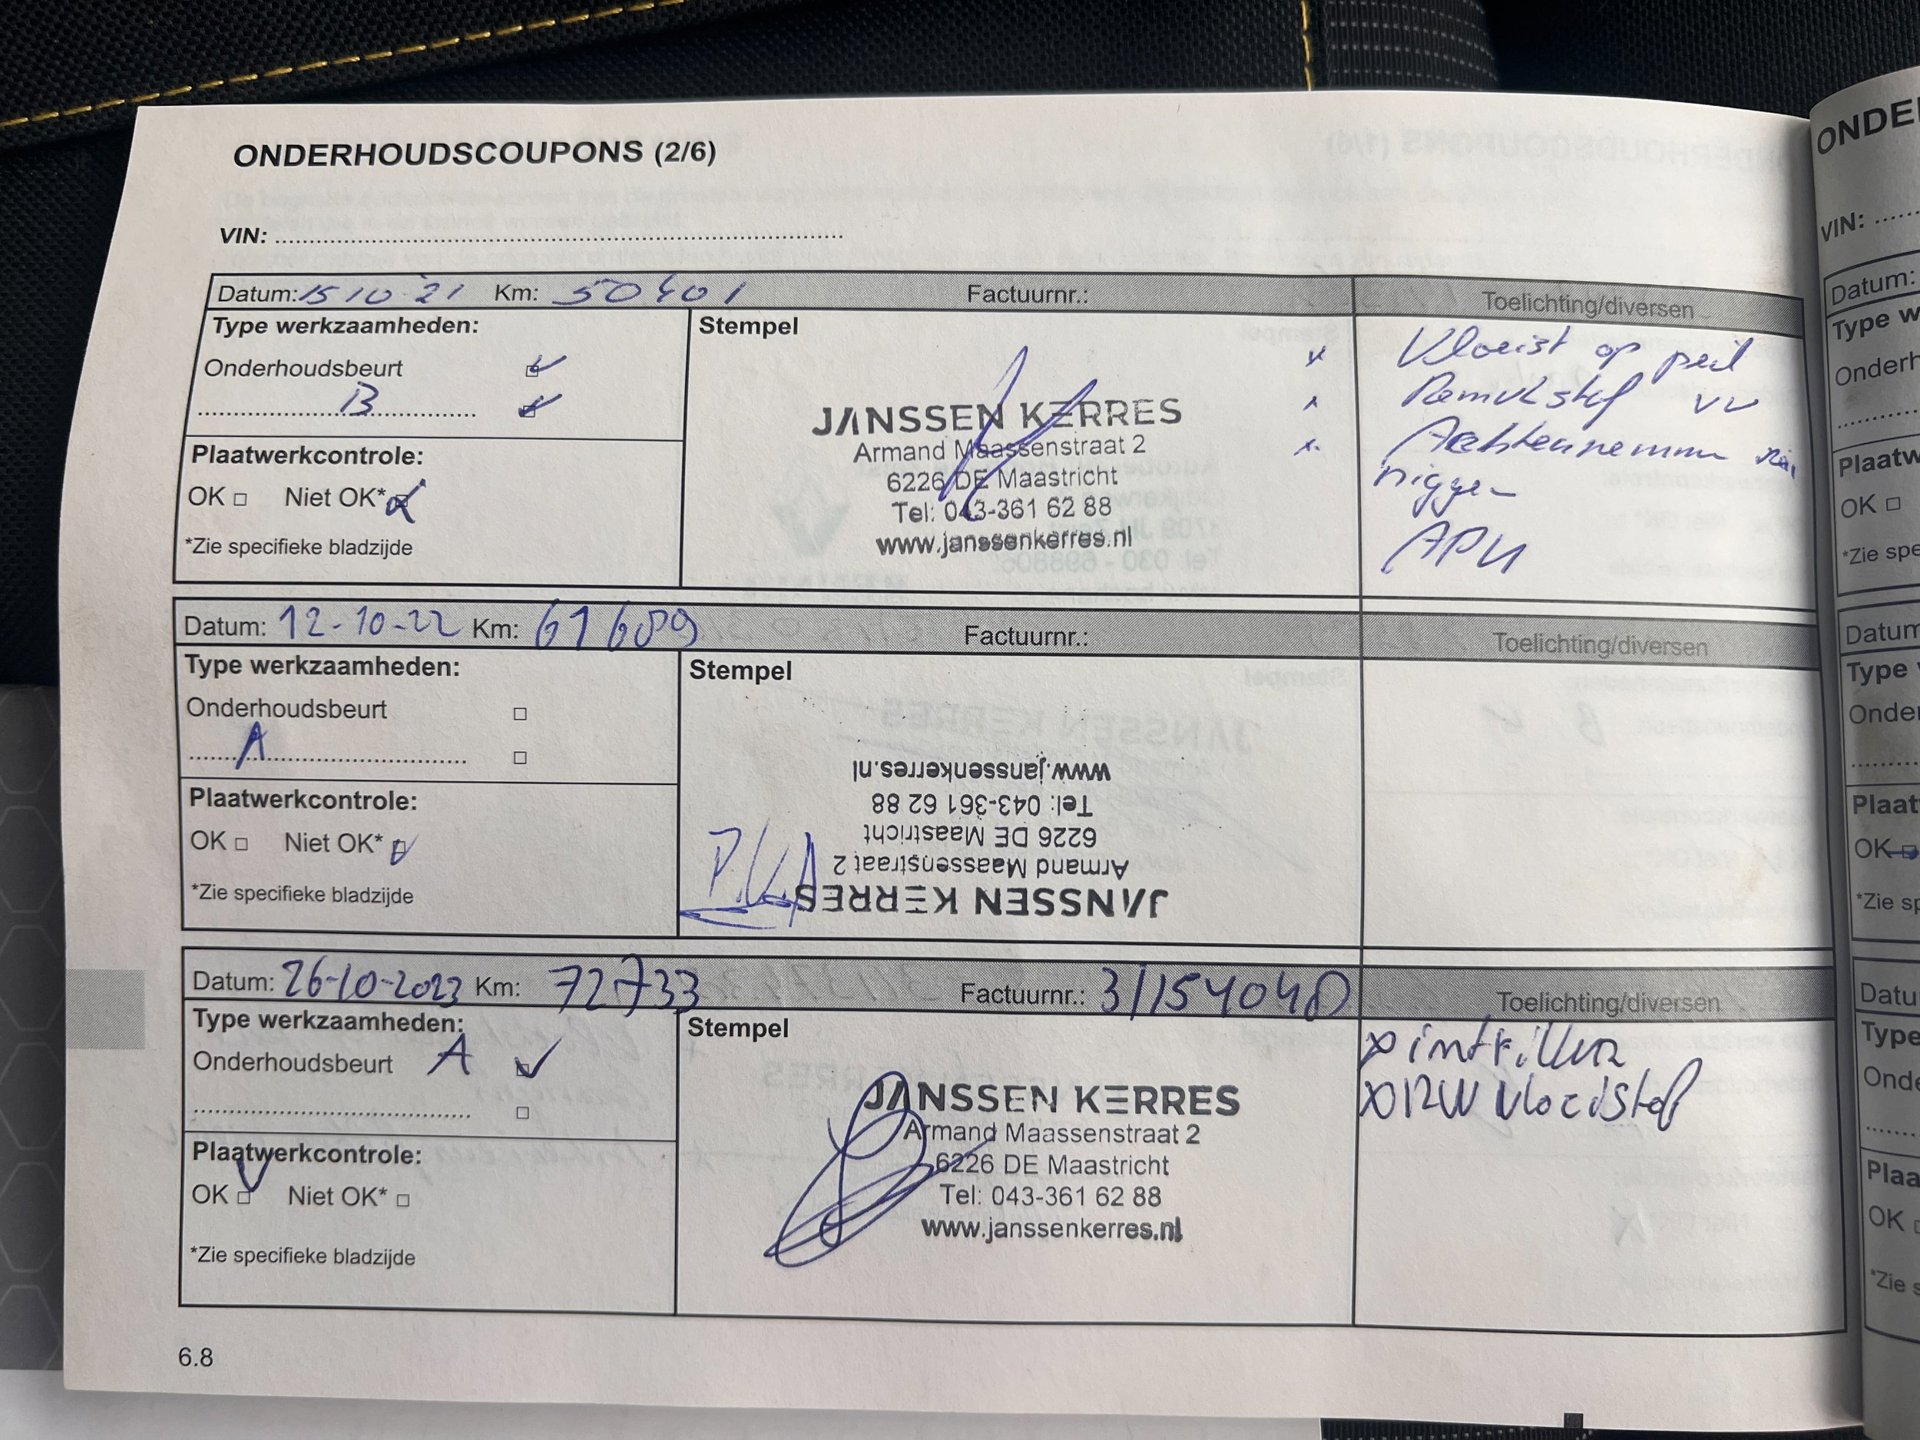 ONDERHOUDSCOUPONS (2/6)
VIN:
Datum: 15 10 21 Km: 50401 Factuurnr.: Toelichting/diversen
Type werkzaamheden:
Onderhoudsbeurt
B
Plaatwerkcontrole:
OK Niet OK*
*Zie specifieke bladzijde
Stempel
JANSSEN KERRES
Armand Maassenstraat 2
6226 DE Maastricht
Tel: 043-361 62 88
www.janssenkerres.nl
x Vloeist op peil
x Remvlstof vv
x
APK
Datum: 12-10-22 Km: 61689 Factuurnr.: Toelichting/diversen
Type werkzaamheden:
Onderhoudsbeurt
A
Plaatwerkcontrole:
OK Niet OK*
*Zie specifieke bladzijde
Stempel
JANSSEN KERRES
Armand Maassenstraat 2
6226 DE Maastricht
Tel: 043-361 62 88
www.janssenkerres.nl
Datum: 26-10-2023 Km: 72733 Factuurnr.: 3/154040 Toelichting/diversen
Type werkzaamheden:
Onderhoudsbeurt A
Plaatwerkcontrole:
OK Niet OK*
*Zie specifieke bladzijde
Stempel
JANSSEN KERRES
Armand Maassenstraat 2
6226 DE Maastricht
Tel: 043-361 62 88
www.janssenkerres.nl
x intrfilter
x RW vloeistof
6.8
ONDE
VIN:
Datum:
Type w
Onderh
Plaatw
OK
*Zie spe
Datum
Type
Onder
Plaat
OK
*Zie sp
Datu
Type
Onde
Plaa
OK
*Zie s